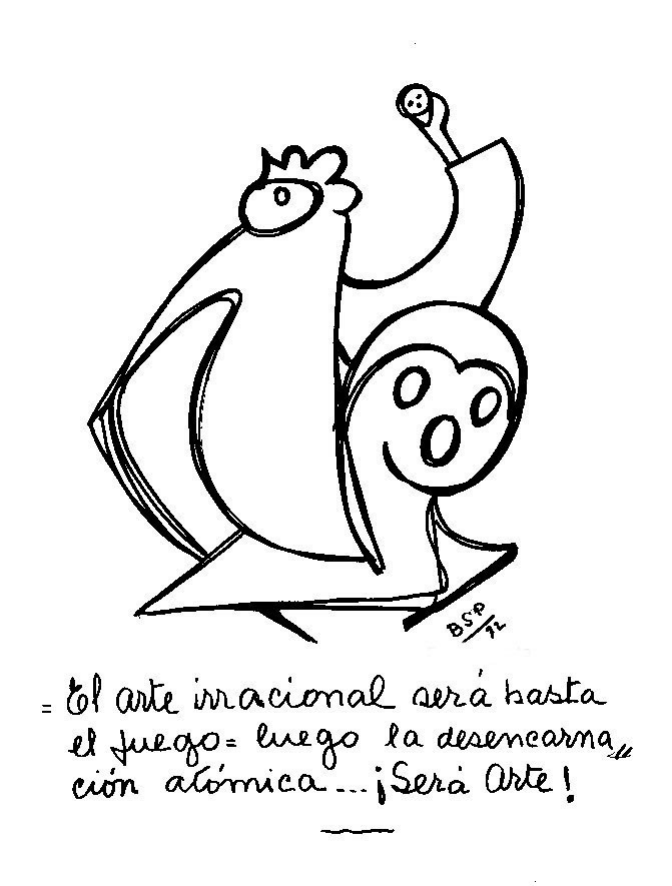 B.S.P
72
= El arte irracional será hasta
el fuego= luego la desencarna„
ción atómica...¡Será Arte!